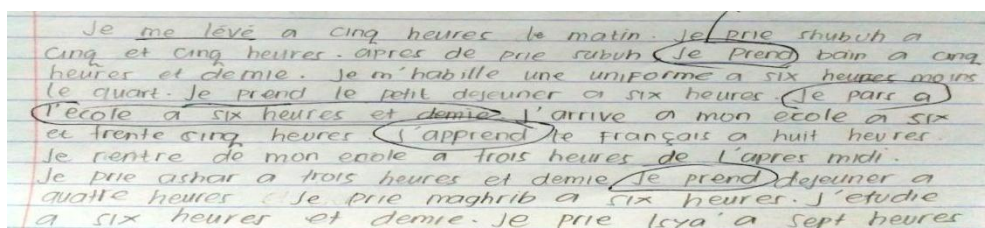 Je me lévé a cinq heures le matin. Je prie shubuh a
cinq et cinq heures. apres de prie subuh Je Prend bain a cinq
heures et demie. Je m'habille une uniforme a six heures moins
le quart. Je prend le petit dejeuner a six heures. Je pars a
l'école a six heures et demie J'arrive a mon école a six
et trente cinq heures J'apprend le Français a huit heures.
Je rentre de mon enole a trois heures de L'apres midi.
Je prie ashar a trois heures et demie Je prend dejeuner a
quatre heures Je prie maghrib a six heures. J'etudie
a six heures et demie. Je prie Isya' a sept heures